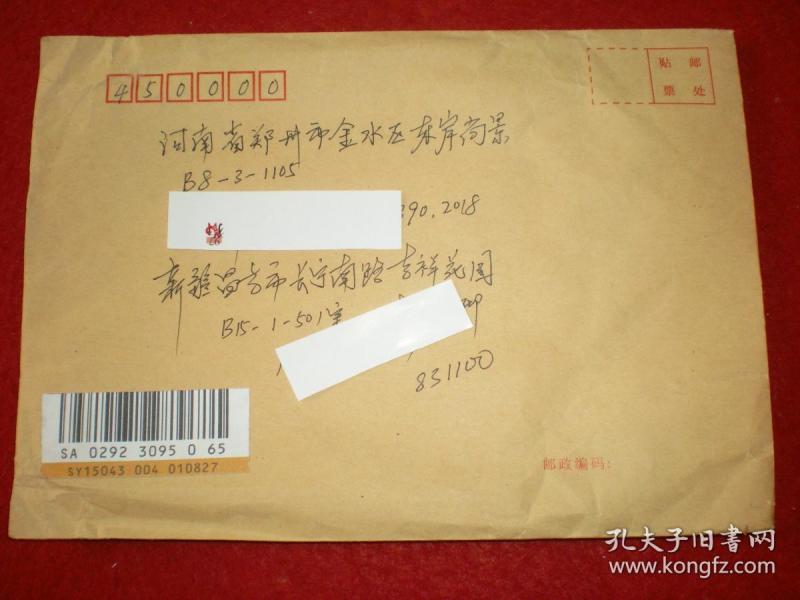 450000
贴邮
票处
河南省郑州市金水区东岸尚景
B8-3-1105
290.2018
新疆昌吉市长宁南路吉祥花园
B15-1-501室
831100
SA 0292 3095 0 65
SY15043 004 010827
邮政编码:
孔夫子旧书网
www.kongfz.com